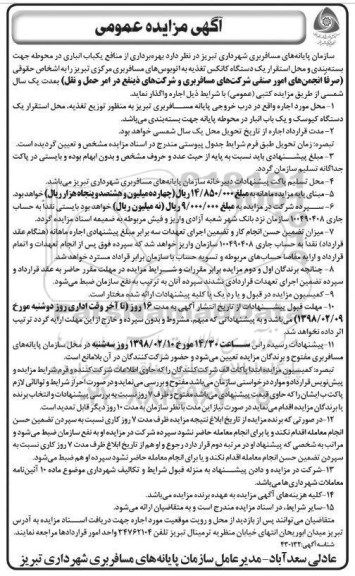 آگهی مزایده عمومی
سازمان پایانه‌های مسافربری شهرداری تبریز در نظر دارد بهره‌برداری از منافع یکباب انباری در محوطه جهت
بسته‌بندی و محل استقرار یک دستگاه کانکس تغذیه به اتوبوس‌های مسافربری مرکزی تبریز را به اشخاص حقوقی
(صرفا انجمن‌های امور صنفی شرکت‌های مسافربری و شرکت‌های ذینفع در امر حمل و نقل) بمدت یک سال
شمسی از طریق مزایده کتبی (عمومی) با شرایط ذیل اجاره واگذار نماید.
۱- محل مورد اجاره واقع در درب خروجی پایانه مسافربری تبریز به منظور توزیع تغذیه، محل استقرار یک
دستگاه کیوسک و یک باب انبار در محوطه پایانه جهت بسته‌بندی می‌باشد.
۲- مدت قرارداد اجاره از تاریخ تحویل محل یک سال شمسی خواهد بود.
تبصره: زمان تحویل طبق فرم شرایط جدول پیوستی مندرج در اسناد مزایده مشخص و تعیین گردیده است.
۳- مبلغ پیشنهادی باید نسبت به پایه از حیث عدد و حروف مشخص و بدون ابهام بوده و بایستی در پاکت
جداگانه تسلیم سازمان گردد.
۴- محل تسلیم پاکت پیشنهادات دبیرخانه سازمان پایانه‌های مسافربری شهرداری تبریز می‌باشد.
۵- مبنای پایه مزایده ماهانه به مبلغ ۱۴/۸۵۰/۰۰۰ ریال (چهارده میلیون و هشتصد و پنجاه هزار ریال) خواهد بود.
۶- سپرده شرکت در مزایده به مبلغ ۹/۰۰۰/۰۰۰ ریال (نه میلیون ریال) خواهد بود بایستی نقدا به حساب
جاری ۱۰۰۴۹۰۴۰۸ سازمان نزد بانک شهر شعبه آزادی واریز و فیش مربوطه به ضمیمه اسناد مزایده گردد.
۷- میزان تضمین حسن انجام کار و تضمین اجرای تعهدات سه برابر مبلغ پیشنهادی اجاره ماهانه (هنگام عقد
قرارداد) نقدا به حساب جاری ۱۰۰۴۹۰۴۰۸ سازمان واریز خواهد شد که سپرده فوق پس از انجام تعهدات و اتمام
قرارداد و ارایه مفاصا حساب‌های مربوطه و تسویه حساب با سازمان برابر قراداد مسترد خواهد شد.
۸- چنانچه برندگان اول و دوم مزایده برابر مقررات و شرایط مزایده در مهلت مقرر حاضر به عقد قرارداد و
سپردن تضمین اجرای تعهدات قراردادی نشدند سپرده آنان به ترتیب به نفع سازمان ضبط می‌شود.
۹- کمیسیون مزایده در قبول و یا رد یک یا کلیه پیشنهادات ارائه شده مختار است.
۱۰- مهلت قبول پیشنهادات از تاریخ انتشار آگهی به مدت ۱۶ روز (تا آخر وقت اداری روز دوشنبه مورخ
۱۳۹۸/۰۲/۰۹) می‌باشد و به پیشنهاداتی که مبهم، مشروط و بدون سپرده و خارج از این مهلت ارایه گردد ترتیب
اثر داده نخواهد شد.
۱۱- پیشنهادات رسیده راس ساعت ۱۴/۳۰ مورخ ۱۳۹۸/۰۲/۱۰ روز سه‌شنبه در محل سازمان پایانه‌های
مسافربری مفتوح و برندگان مزایده تعیین می‌شود و حضور شرکت‌کنندگان در آن بلامانع است.
تبصره: کمیسیون مزایده ابتدا پاکات الف شرکت‌کنندگان را که حاوی اطلاعات شرکت‌کننده و فرم شرایط مزایده و
پیش‌نویس قرارداد و موارد درخواستی سازمان می‌باشد مفتوح و بررسی می‌نماید و در صورت احراز شرایط و توانائی لازم
پاکت ب ایشان را که حاوی قیمت پیشنهادی می‌باشد مفتوح و ظرف ۷ روز نسبت به بررسی پیشنهادات و انتخاب برنده
یا برندگان مزایده اقدام می‌نماید در صورت نیاز این مدت با نظر سازمان به مدت ۱۰ روز دیگر قابل تمدید است.
۱۲- در صورتی که برنده مزایده از تاریخ ابلاغ نتیجه مزایده ظرف مدت ۷ روز کاری نسبت به سپردن تضمین حسن
انجام معامله اقدام نکند و یا برای انجام معامله حاضر نشود سپرده شرکت در مزایده او به نفع سازمان ضبط می‌شود و
مراتب به شخصی که پیشنهاد او در مرتبه دوم قرار دارد رجوع و او هم از تاریخ ابلاغ ظرف مدت ۷ روز کاری نسبت به
سپردن تضمین حسن انجام معامله اقدام نکند و یا برای انجام معامله حاضر نشود سپرده او هم ضبط می‌شود.
۱۳- شرکت در مزایده و دادن پیشنهاد به منزله قبول شرایط و تکالیف شهرداری موضوع ماده ۱۰ آئین‌نامه
معاملات شهرداری‌ها می‌باشد.
۱۴- کلیه هزینه‌های آگهی مزایده به عهده برنده مزایده می‌باشد.
۱۵- سایر شرایط، در اسناد مزایده مندرج است و به متقاضیان ارائه می‌شود.
متقاضیان می‌توانند پس از بازدید از محل و رویت موقعیت مورد اجاره جهت دریافت اسناد مزایده به آدرس
تبریز میدان ابوریحان انتهای خیابان منظریه ترمینال تبریز تلفن ۳۴۷۶۲۱۰۴ واحد امور قراردادها مراجعه نمایند.
شناسه آگهی: ۴۳۰۱۳۲
عادلی سعدآباد- مدیرعامل سازمان پایانه‌های مسافربری شهرداری تبریز